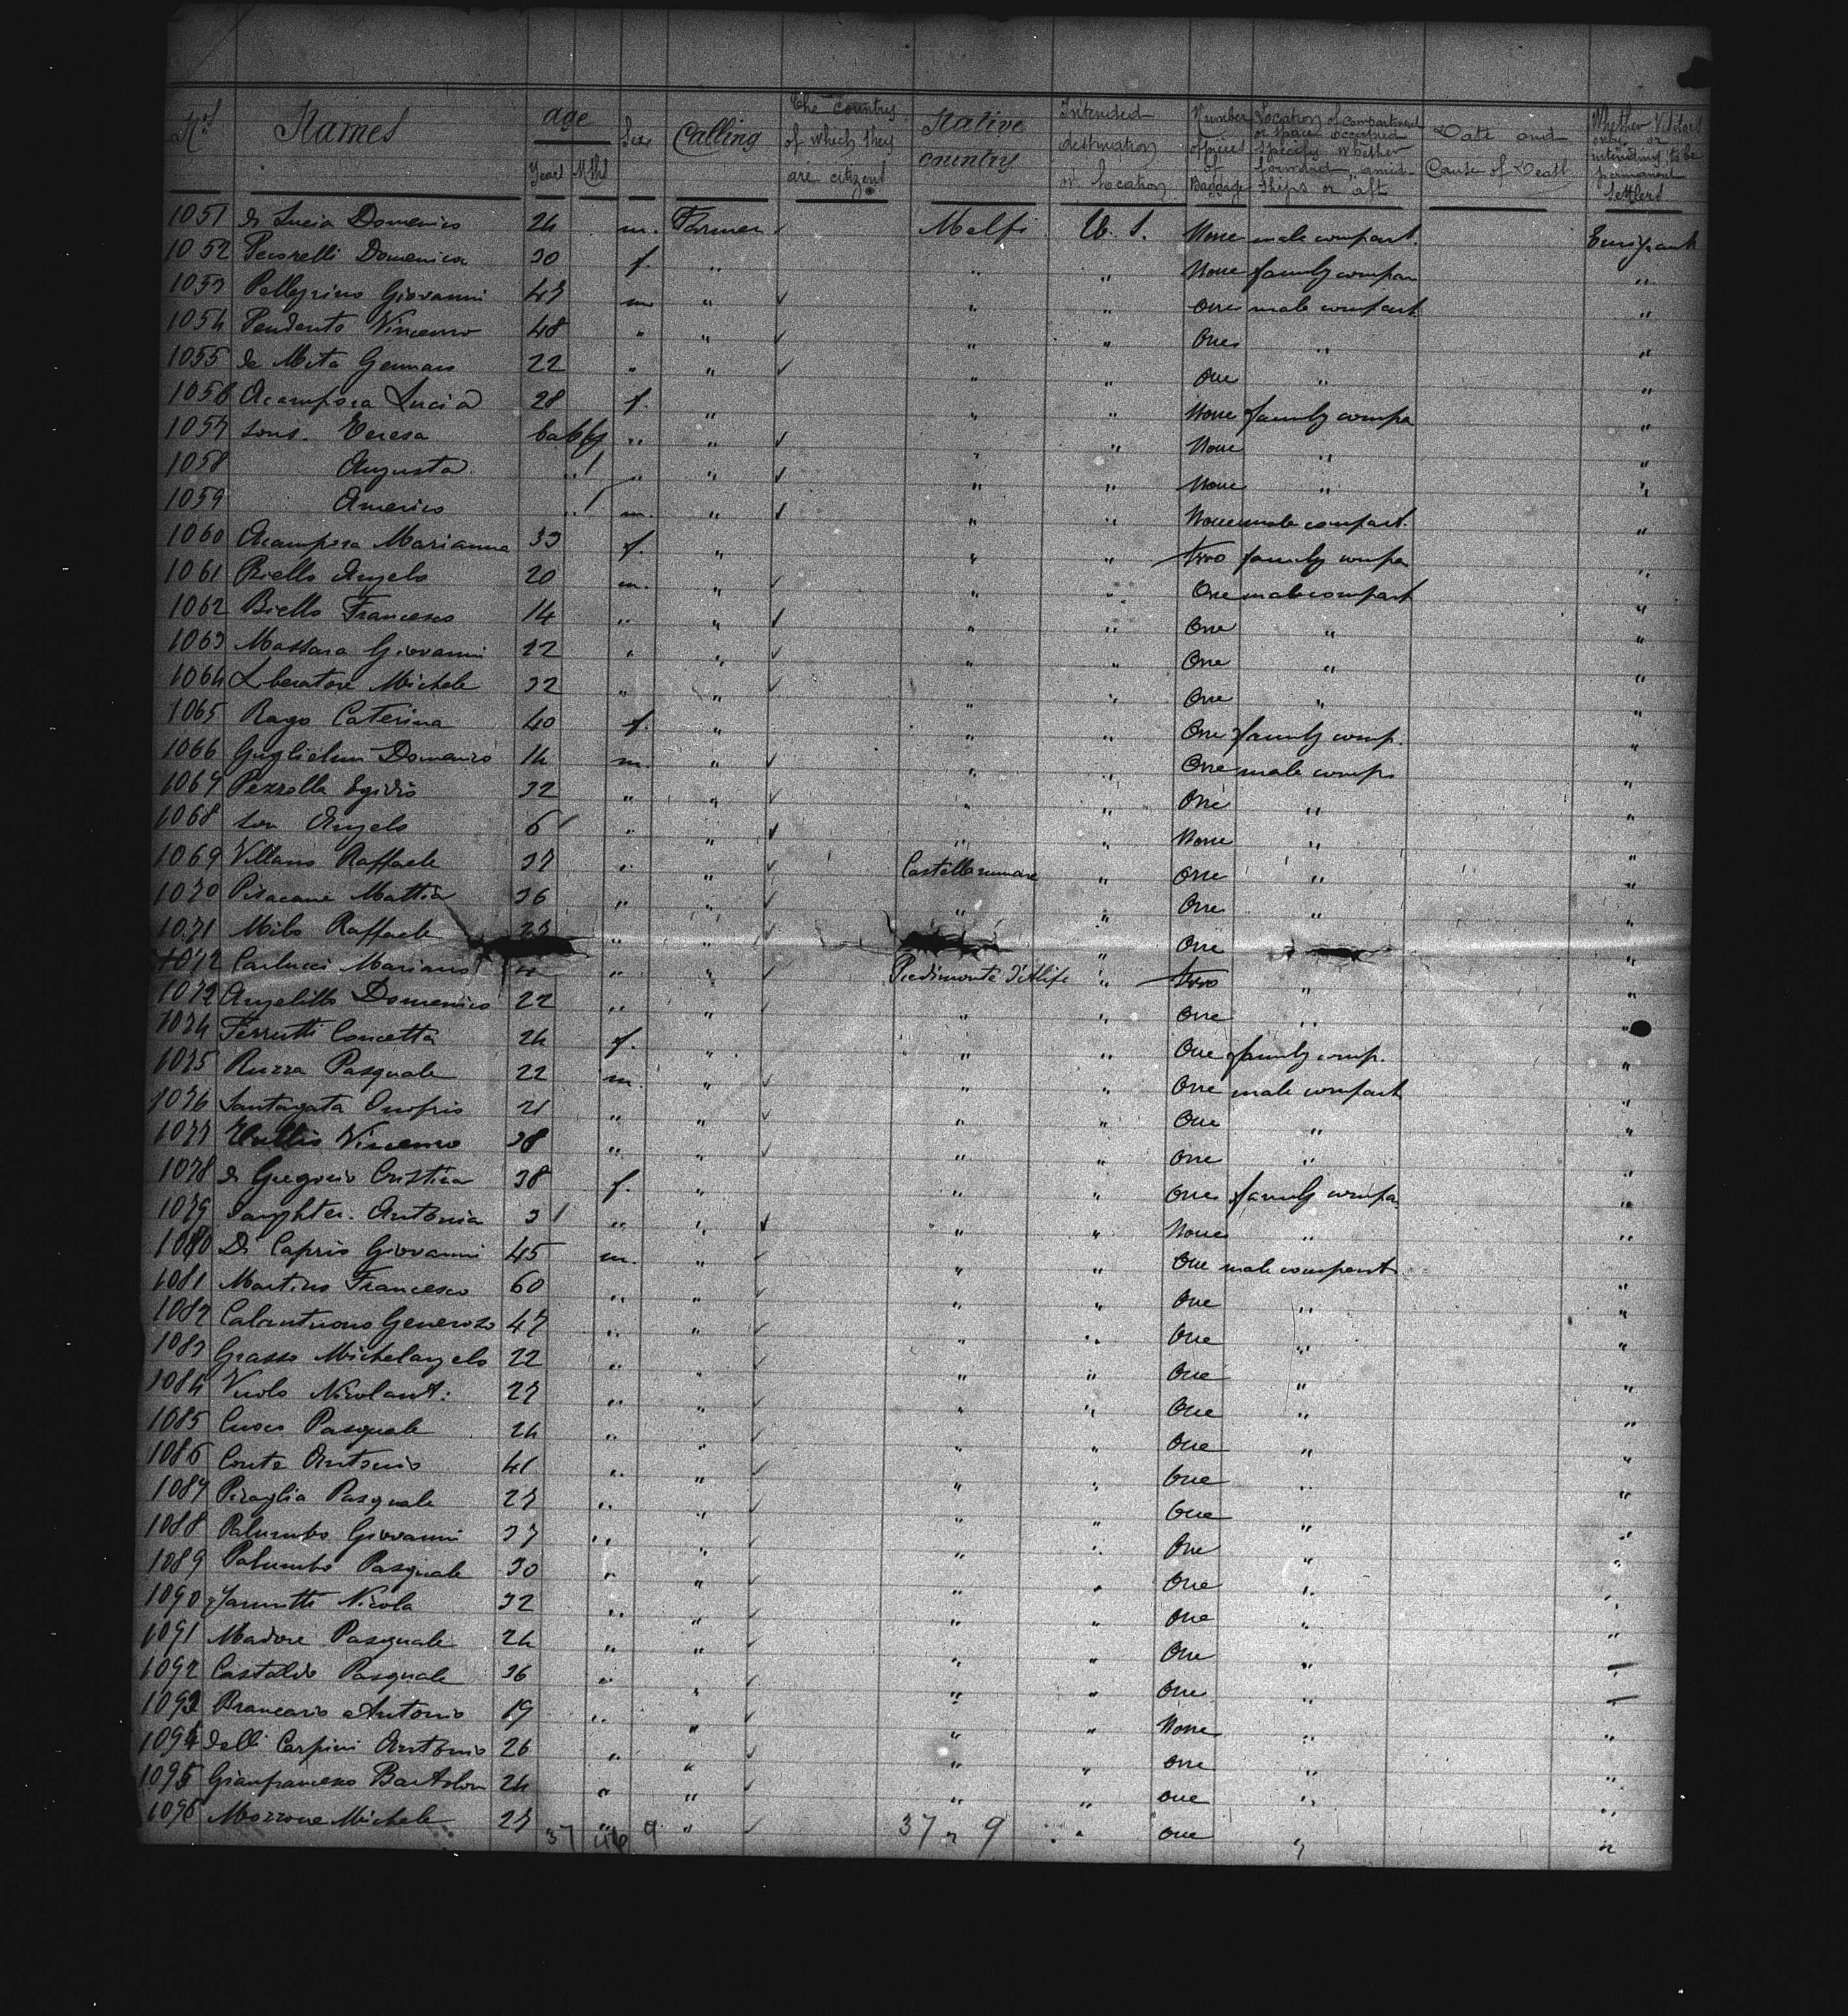 Nos Names age Years Mths Sex Calling The country of which they are citizens Native country Intended destination or location Number of pieces of Baggage Location of compartment or space occupied specify whether forward, amidships or aft Date and Cause of Death Whether Visitors only or intending to be permanent Settlers
1051 di Lucia Domenico 24 m. Farmer ✓ Melfi U. S. None male compart. Emigrant
1052 Pecorelli Domenica 30 f. " " " None family compar "
1053 Pellegrino Giovanni 47 m " ✓ " " One male compart "
1054 Pendento Vincenzo 48 " " ✓ " " One " "
1055 de Mita Gennaro 22 " " ✓ " " One " "
1056 Acampora Lucia 28 f. " " " None family compa "
1057 sons. Teresa baby " " ✓ " " None " "
1058 Augusta " 1 " " ✓ " " None " "
1059 Americo " 1 m. " ✓ " " None male compart. "
1060 Acampora Marianna 33 f. " " " two family compa "
1061 Biello Angelo 20 m. " ✓ " " One male compart "
1062 Biello Francesco 14 " " ✓ " " One " "
1063 Massara Giovanni 22 " " ✓ " " One " "
1064 Liberatore Michele 32 " " ✓ " " One " "
1065 Rago Caterina 40 f. " " " One family comp. "
1066 Guglielmo Domenico 14 m. " ✓ " " One male comp. "
1067 Pezzella Egidio 32 " " ✓ " " One " "
1068 son Angelo 6 " " ✓ " " None " "
1069 Villano Raffaele 37 " " ✓ Castellammare " One " "
1070 Pisacane Mattia 36 " " ✓ " " One " "
1071 Milo Raffaele 23 " " ✓ " One "
1072 Carlucci Mariano " " ✓ Piedimonte d'Alife " two " "
1073 Angelillo Domenico 22 " " ✓ " " One " "
1074 Ferrutti Concetta 24 f. " " " One family comp. "
1075 Ruzza Pasquale 22 m. " ✓ " " One male compart "
1076 Santagata Onofrio 21 " " ✓ " " One " "
1077 Vincenzo 38 " " ✓ " " One " "
1078 di Gregorio Cristina 38 f. " " " One family compa "
1079 daughter. Antonia 3 " " ✓ " " None " "
1080 Di Caprio Giovanni 45 m. " ✓ " " One male compart "
1081 Martino Francesco 60 " " ✓ " " One " "
1082 Calantuono Generoso 47 " " ✓ " " One " "
1083 Grasso Michelangelo 22 " " ✓ " " One " "
1084 Vuolo Nicolant: 27 " " ✓ " " One " "
1085 Cuoco Pasquale 24 " " ✓ " " One " "
1086 Conte Antonio 41 " " ✓ " " One " "
1087 Piraglia Pasquale 27 " " ✓ " " One " "
1088 Palumbo Giovanni 37 " " ✓ " " One " "
1089 Palumbo Pasquale 30 " " ✓ " " One " "
1090 Jannitti Nicola 32 " " ✓ " " One " "
1091 Madore Pasquale 24 " " ✓ " " One " "
1092 Castaldo Pasquale 36 " " ✓ " " One " "
1093 Brancario Antonio 19 " " ✓ " " None " "
1094 delli Carpini Antonio 26 " " ✓ " " one " "
1095 Gianfrancesco Bartolom 24 " " ✓ " " one " "
1096 Mozzone Michele 27 " " ✓ " " one " "
37 46 9 37 9